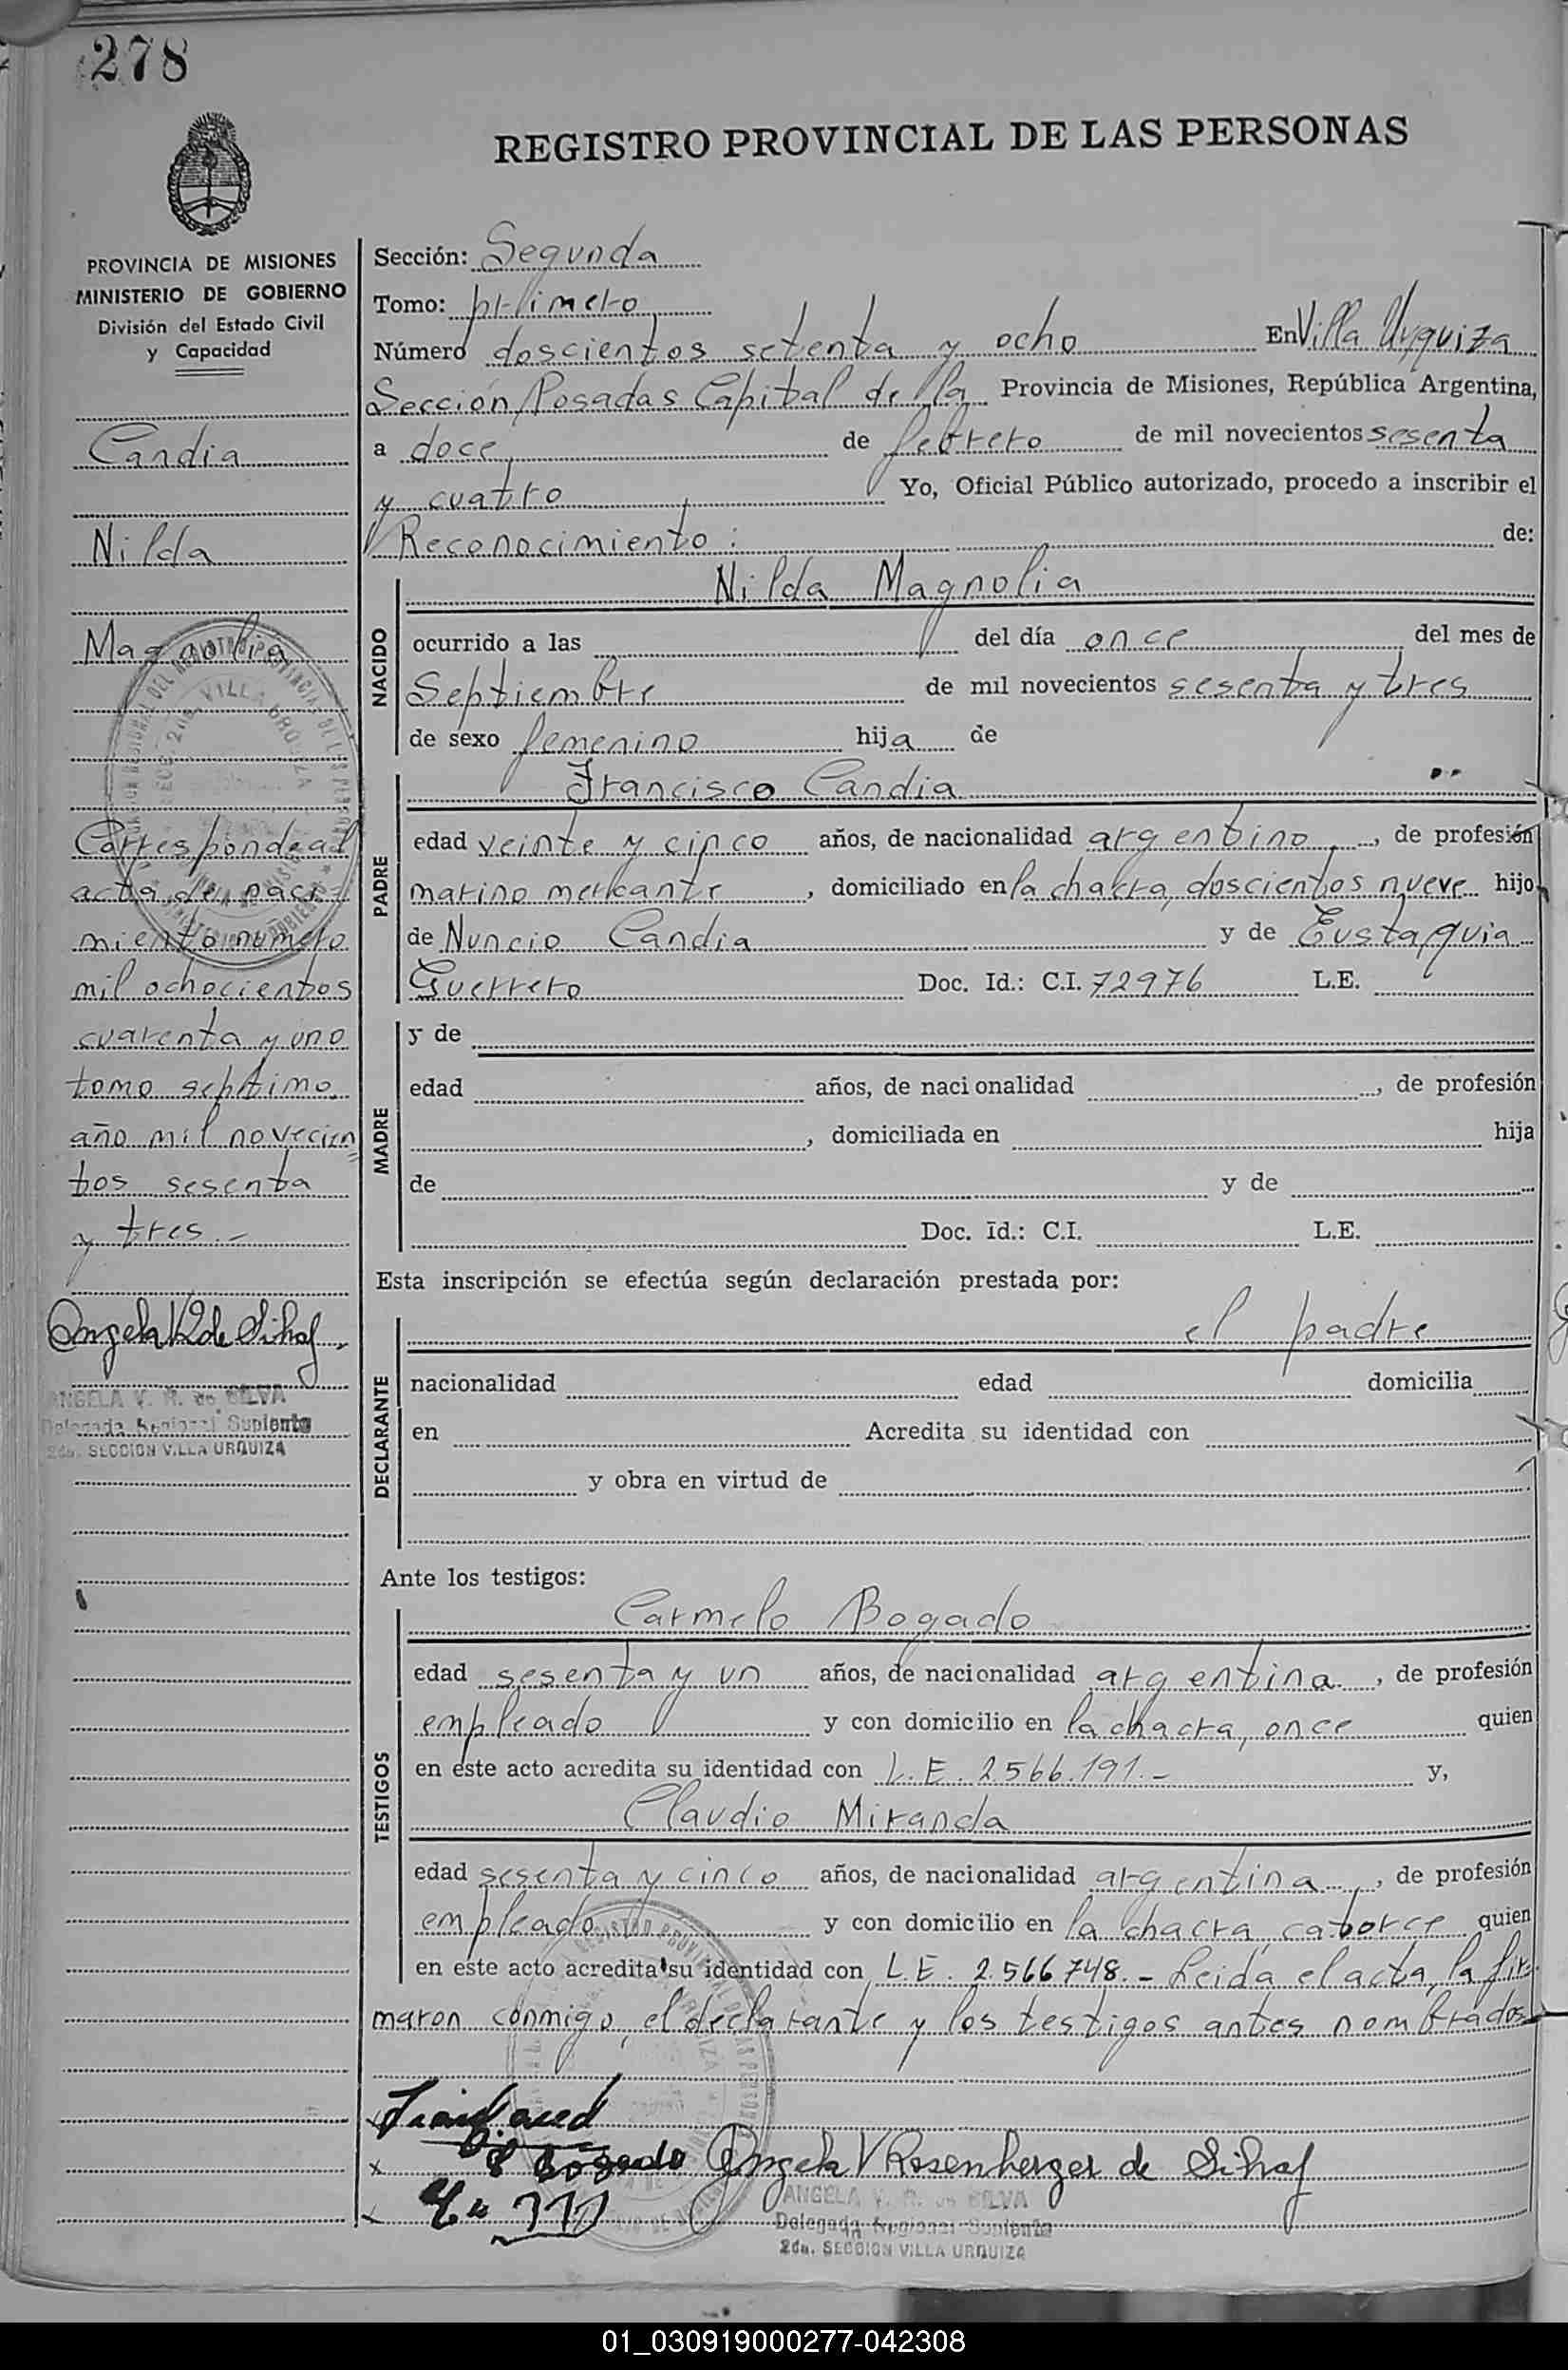 278
REGISTRO PROVINCIAL DE LAS PERSONAS
PROVINCIA DE MISIONES
MINISTERIO DE GOBIERNO
División del Estado Civil
y Capacidad
Candia
Nilda
Magnolia
Corresponde al
acta de naci-
miento número
mil ochocientos
cuarenta y uno
tomo septimo,
año mil novecien
tos sesenta
y tres.-
ANGELA V. R. de SILVA
Delegada Regional Suplente
2da. SECCION VILLA URQUIZA
Sección: Segunda
Tomo: primero
Número doscientos setenta y ocho En Villa Urquiza
Sección Posadas Capital de la Provincia de Misiones, República Argentina,
a doce de febrero de mil novecientos sesenta
y cuatro Yo, Oficial Público autorizado, procedo a inscribir el
Reconocimiento: de:
NACIDO
Nilda Magnolia
ocurrido a las del día once del mes de
Septiembre de mil novecientos sesenta y tres
de sexo femenino hija de
PADRE
Francisco Candia
edad veinte y cinco años, de nacionalidad argentino, de profesión
marino mercante, domiciliado en la chacra, doscientos nueve hijo
de Nuncio Candia y de Eustaquia
Guerrero Doc. Id.: C.I. 72976 L.E.
MADRE
y de
edad años, de nacionalidad , de profesión
, domiciliada en hija
de y de
Doc. Id.: C.I. L.E.
Esta inscripción se efectúa según declaración prestada por:
DECLARANTE
el padre
nacionalidad edad domicilia
en Acredita su identidad con
y obra en virtud de
Ante los testigos:
TESTIGOS
Carmelo Bogado
edad sesenta y un años, de nacionalidad argentina, de profesión
empleado y con domicilio en la chacra, once quien
en este acto acredita su identidad con L.E. 2.566.191.- y,
Claudio Miranda
edad sesenta y cinco años, de nacionalidad argentina, de profesión
empleado y con domicilio en la chacra catorce quien
en este acto acredita su identidad con L.E. 2.566748.- Leida el acta, la fir
maron conmigo, el declarante y los testigos antes nombrados
x Bogado Angela V Rosenberger de Silva
ANGELA V. R. de SILVA
Delegada Regional Suplente
2da. SECCION VILLA URQUIZA
01_030919000277-042308